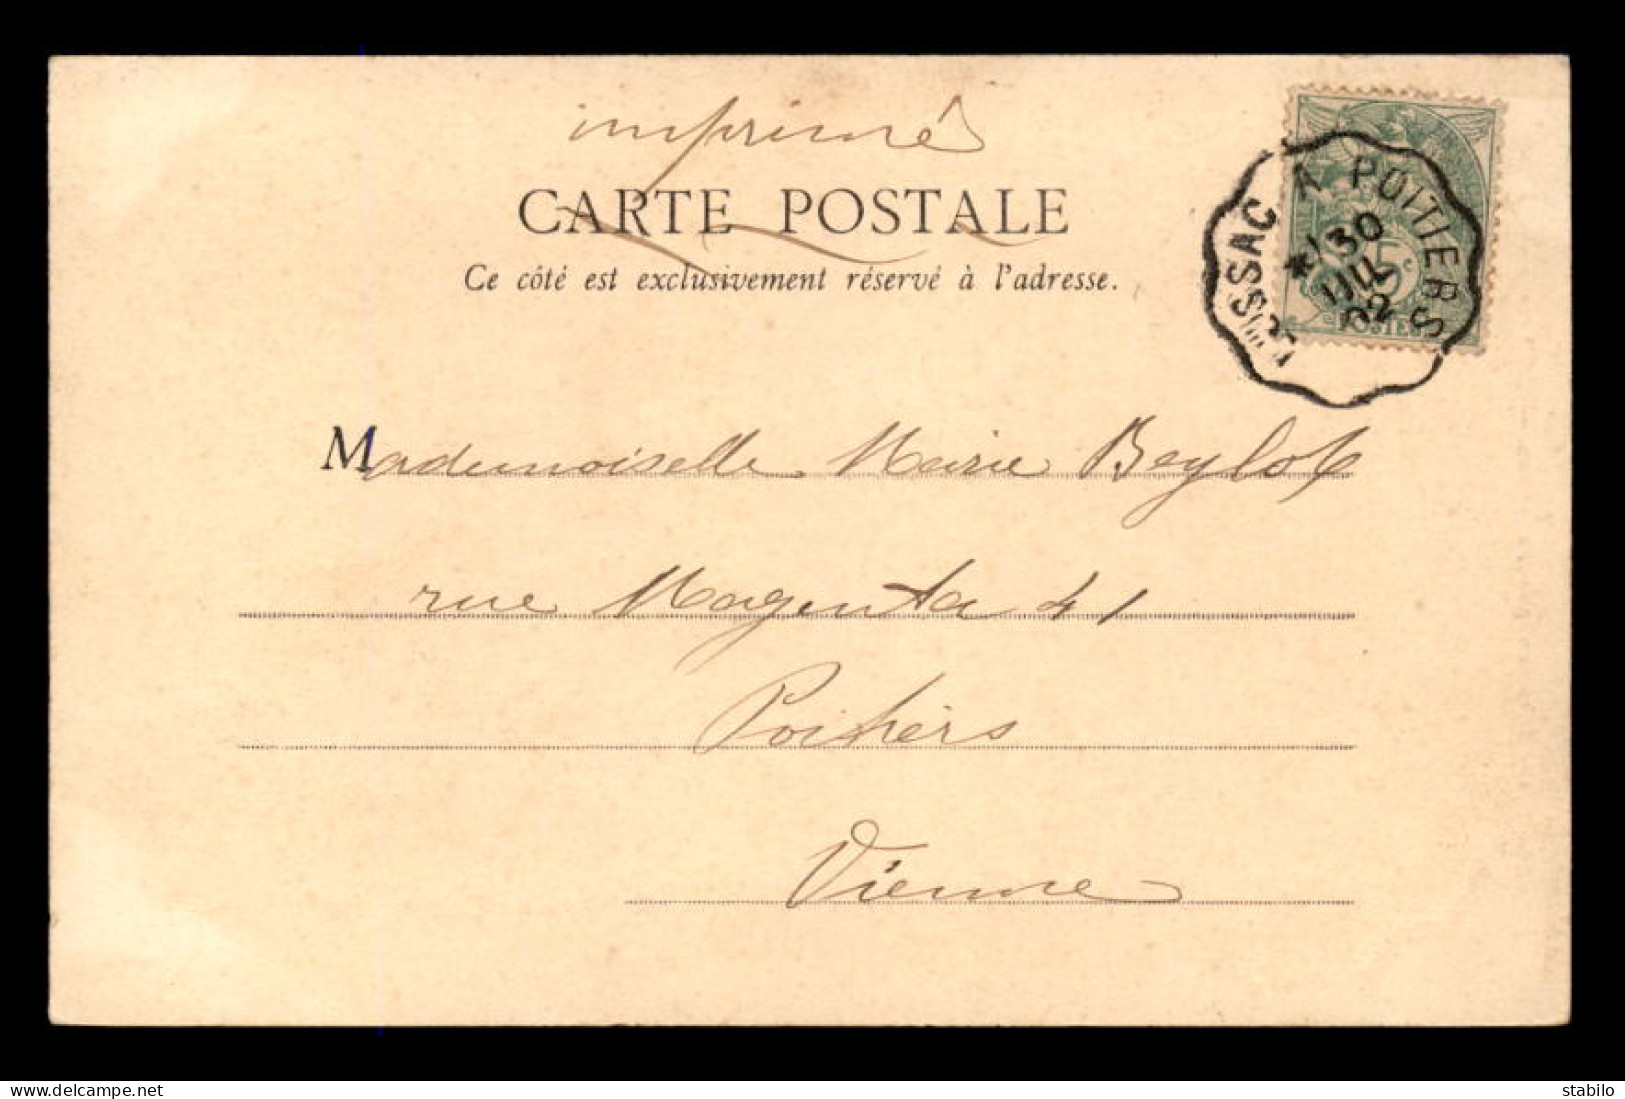 imprimé
CARTE POSTALE
Ce côté est exclusivement réservé à l'adresse.
A POITIERS
30
JUIL
02
5c
POSTES
Mademoiselle Marie Beylot
rue Magenta 41
Poitiers
Vienne
www.delcampe.net
stabilo